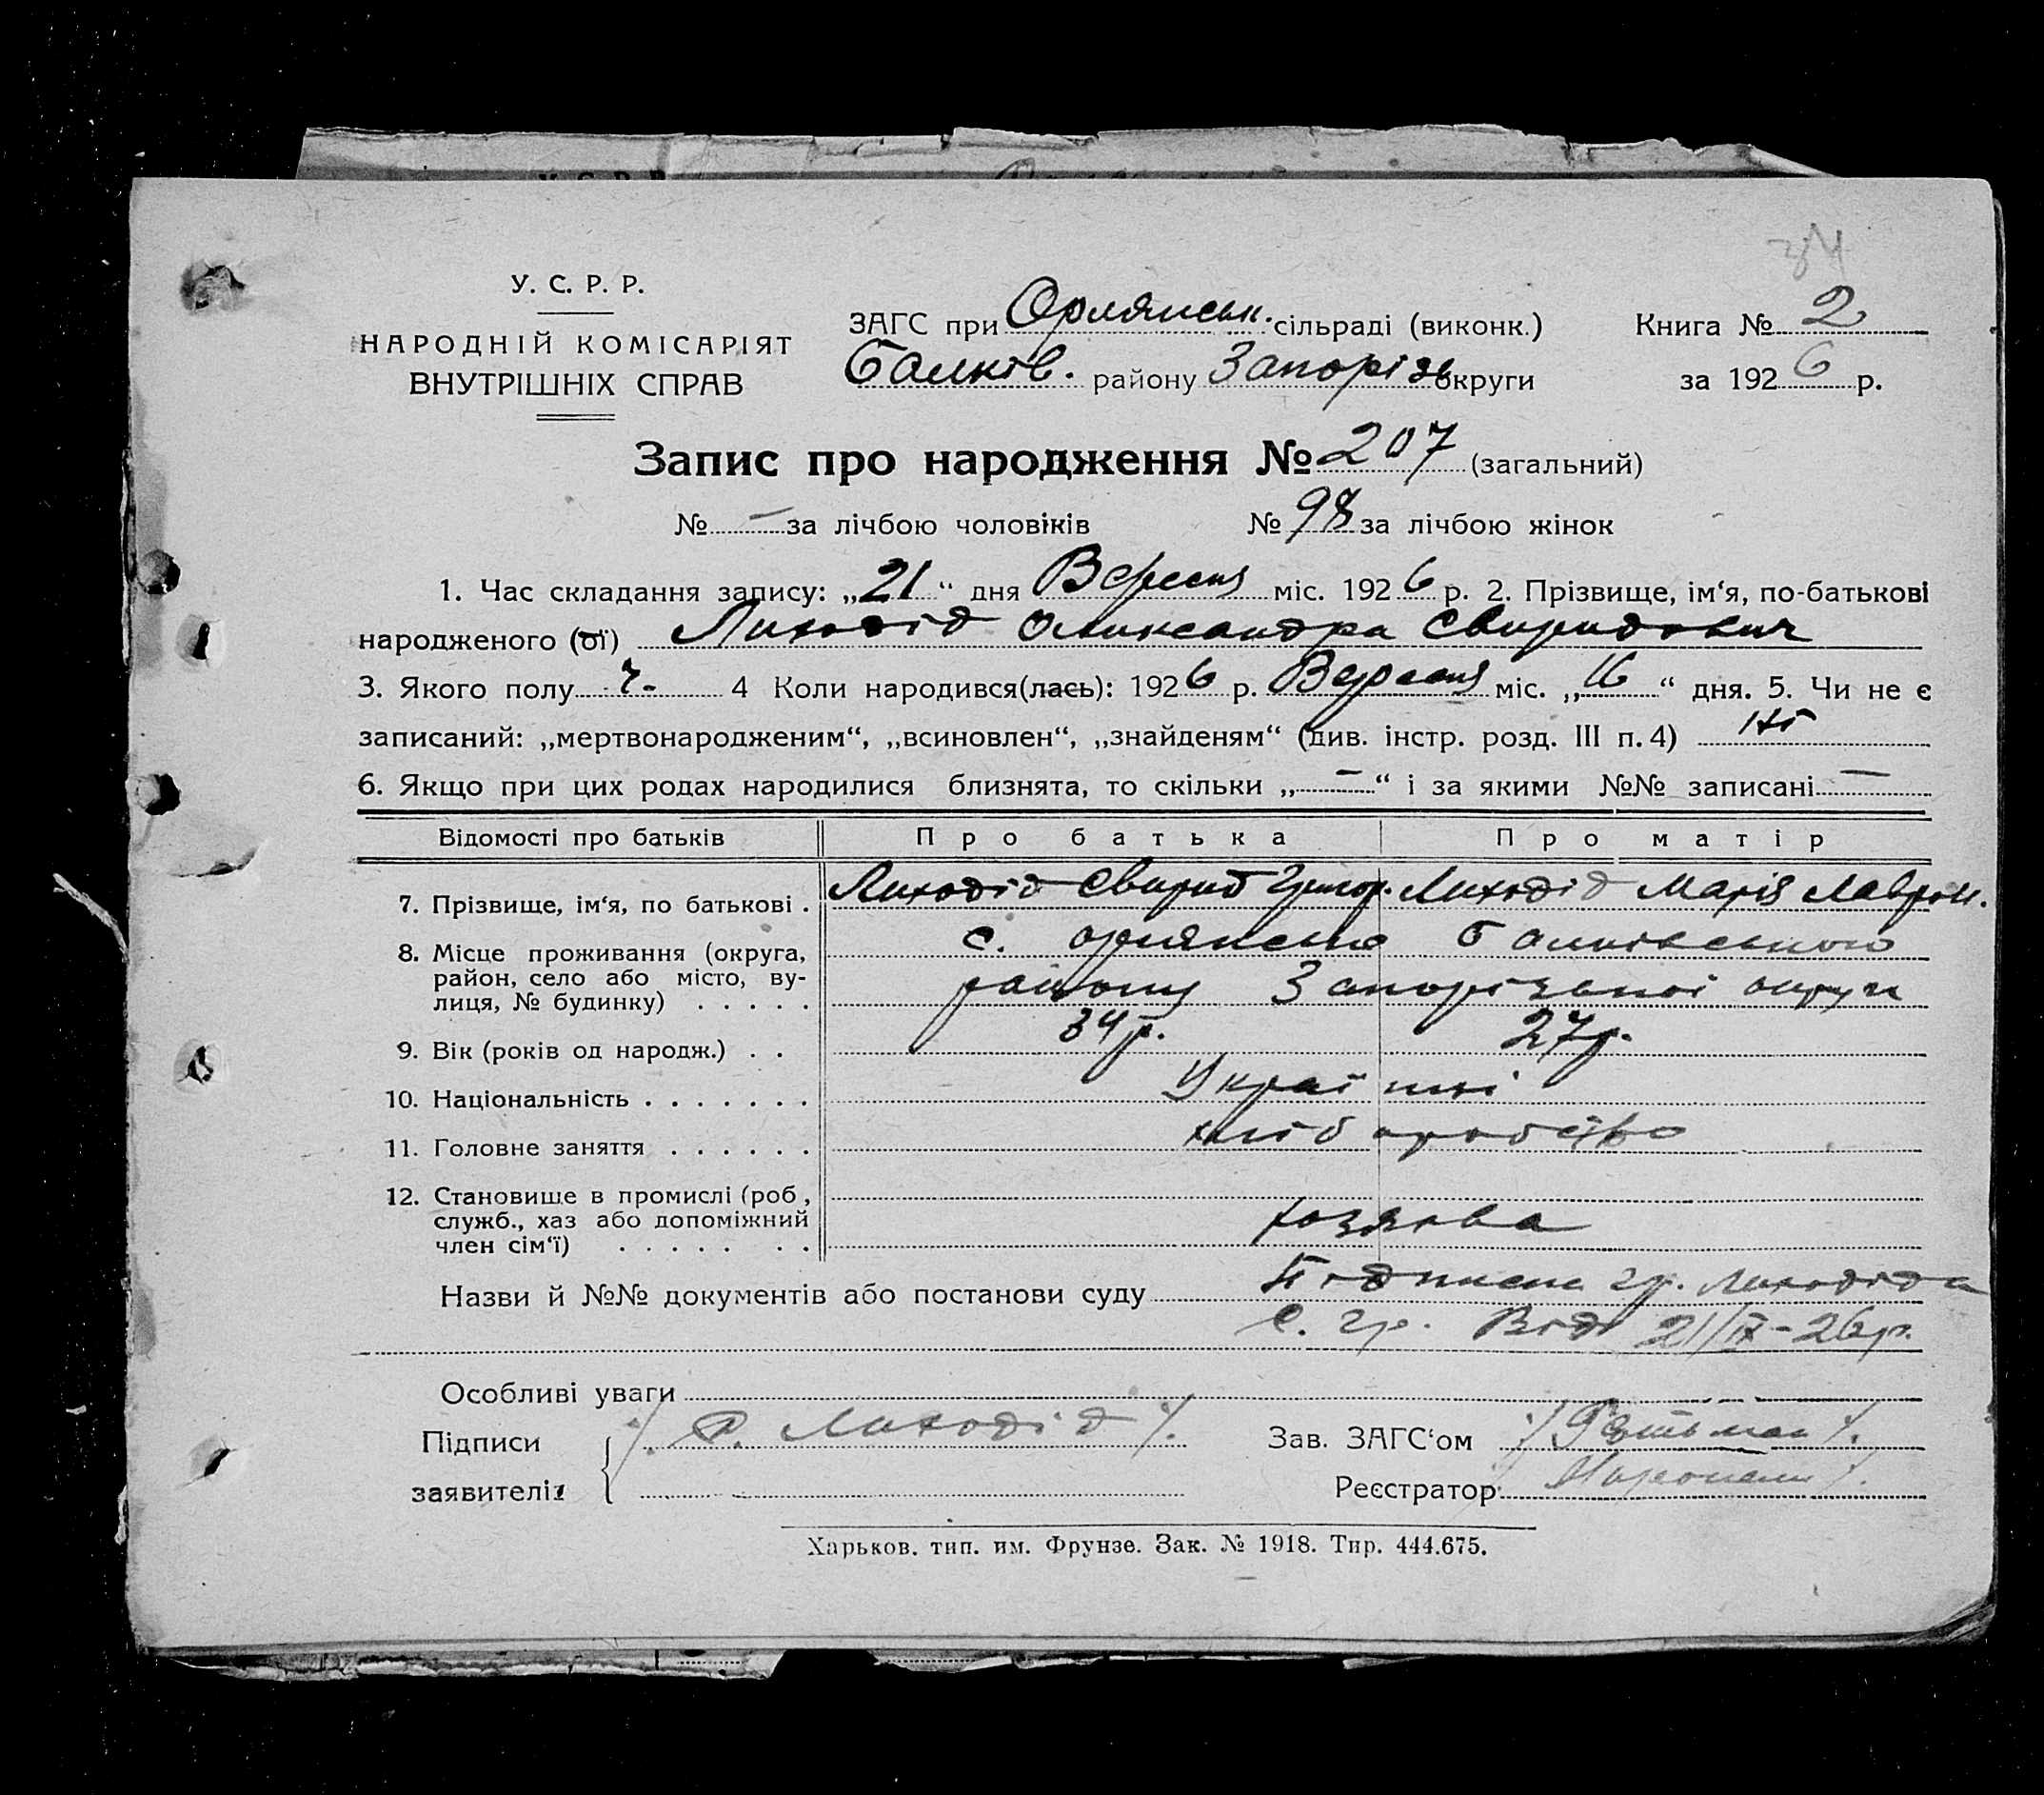 34
У. С. Р. Р.
НАРОДНІЙ КОМІСАРІЯТ
ВНУТРІШНІХ СПРАВ
ЗАГС при Орлянськ. сільраді (виконк.)
Балків. району Запорізь округи
Книга № 2
за 1926 р.
Запис про народження № 207 (загальний)
№ — за лічбою чоловіків № 98 за лічбою жінок
1. Час складання запису: „21“ дня Вересня міс. 1926 р. 2. Прізвище, ім‘я, по-батькові
народженого (ої) Лиходід Олександра Свиридович
3. Якого полу ч. 4 Коли народився(лась): 1926 р. Вересня міс. „16“ дня. 5. Чи не є
записаний: „мертвонародженим“, „всиновлен“, „знайденям“ (див. інстр. розд. III п. 4) Ні
6. Якщо при цих родах народилися близнята, то скільки „—“ і за якими №№ записані —
Відомості про батьків Про батька Про матір
7. Прізвище, ім‘я, по батькові . Лиходід Свирид Григор. Лиходід Марія Лаврон.
8. Місце проживання (округа, с. Орлянське Балківського
район, село або місто, ву-
лиця, № будинку) . . . . . району Запорізької округи
9. Вік (років од народж.) . . 34 р. 27 р.
10. Національність . . . . . . . Українці
11. Головне заняття . . . . . . хліборобство
12. Становище в промислі (роб,
служб., хаз або допоміжний
член сім‘ї) . . . . . . . хозяєва
Назви й №№ документів або постанови суду Підписка гр. Лиходіда
С. Гр. Від 21/IX-26 р.
Особливі уваги
Підписи /. Лиходід /.
заявителів
Зав. ЗАГС‘ом / Гетьман /.
Реєстратор
Харьков. тип. им. Фрунзе. Зак. № 1918. Тир. 444.675.